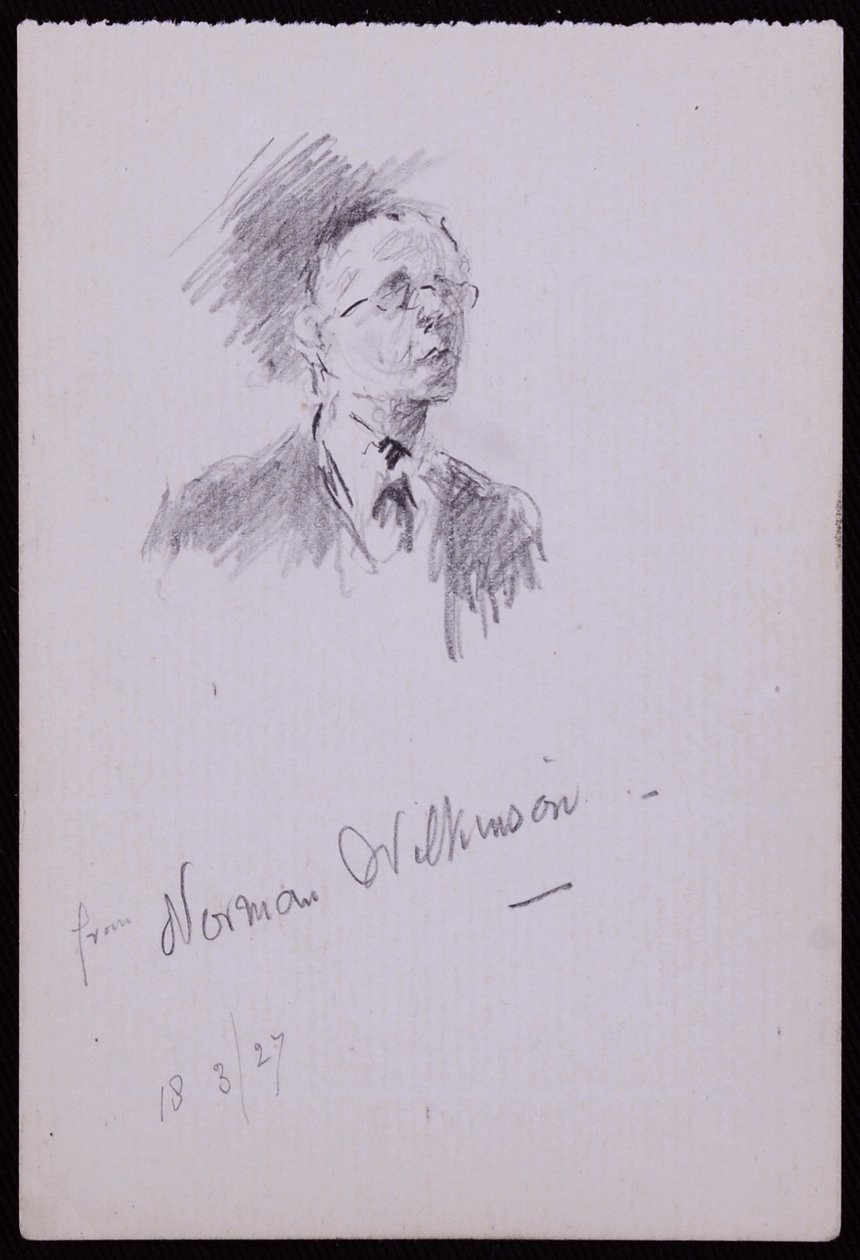 from Norman Wilkinson -
18 3/27